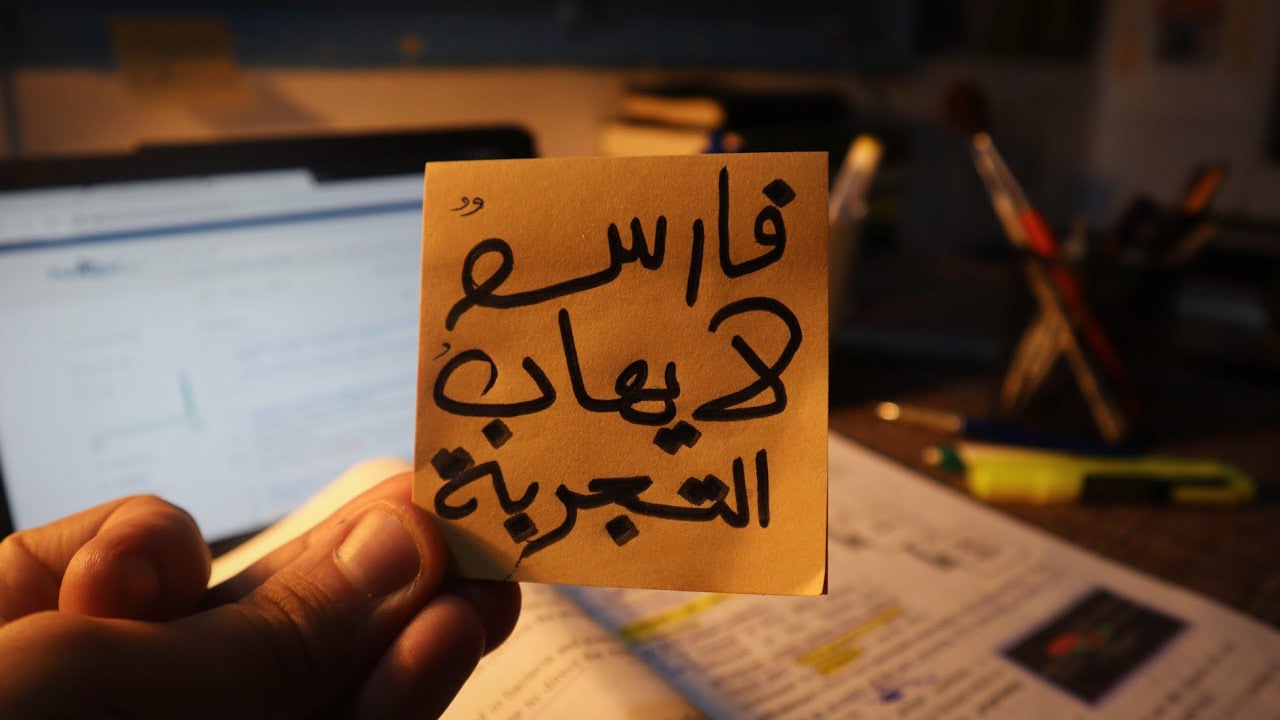 فارسٌ
لا يهابُ
التجربة